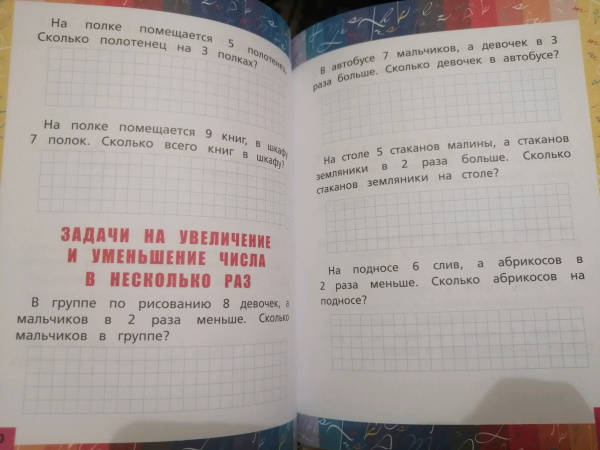 На полке помещается 5 полотенец.
Сколько полотенец на 3 полках?
На полке помещается 9 книг, в шкафу
7 полок. Сколько всего книг в шкафу?
ЗАДАЧИ НА УВЕЛИЧЕНИЕ
И УМЕНЬШЕНИЕ ЧИСЛА
В НЕСКОЛЬКО РАЗ
В группе по рисованию 8 девочек, а
мальчиков в 2 раза меньше. Сколько
мальчиков в группе?
В автобусе 7 мальчиков, а девочек в 3
раза больше. Сколько девочек в автобусе?
На столе 5 стаканов малины, а стаканов
земляники в 2 раза больше. Сколько
стаканов земляники на столе?
На подносе 6 слив, а абрикосов в
2 раза меньше. Сколько абрикосов на
подносе?